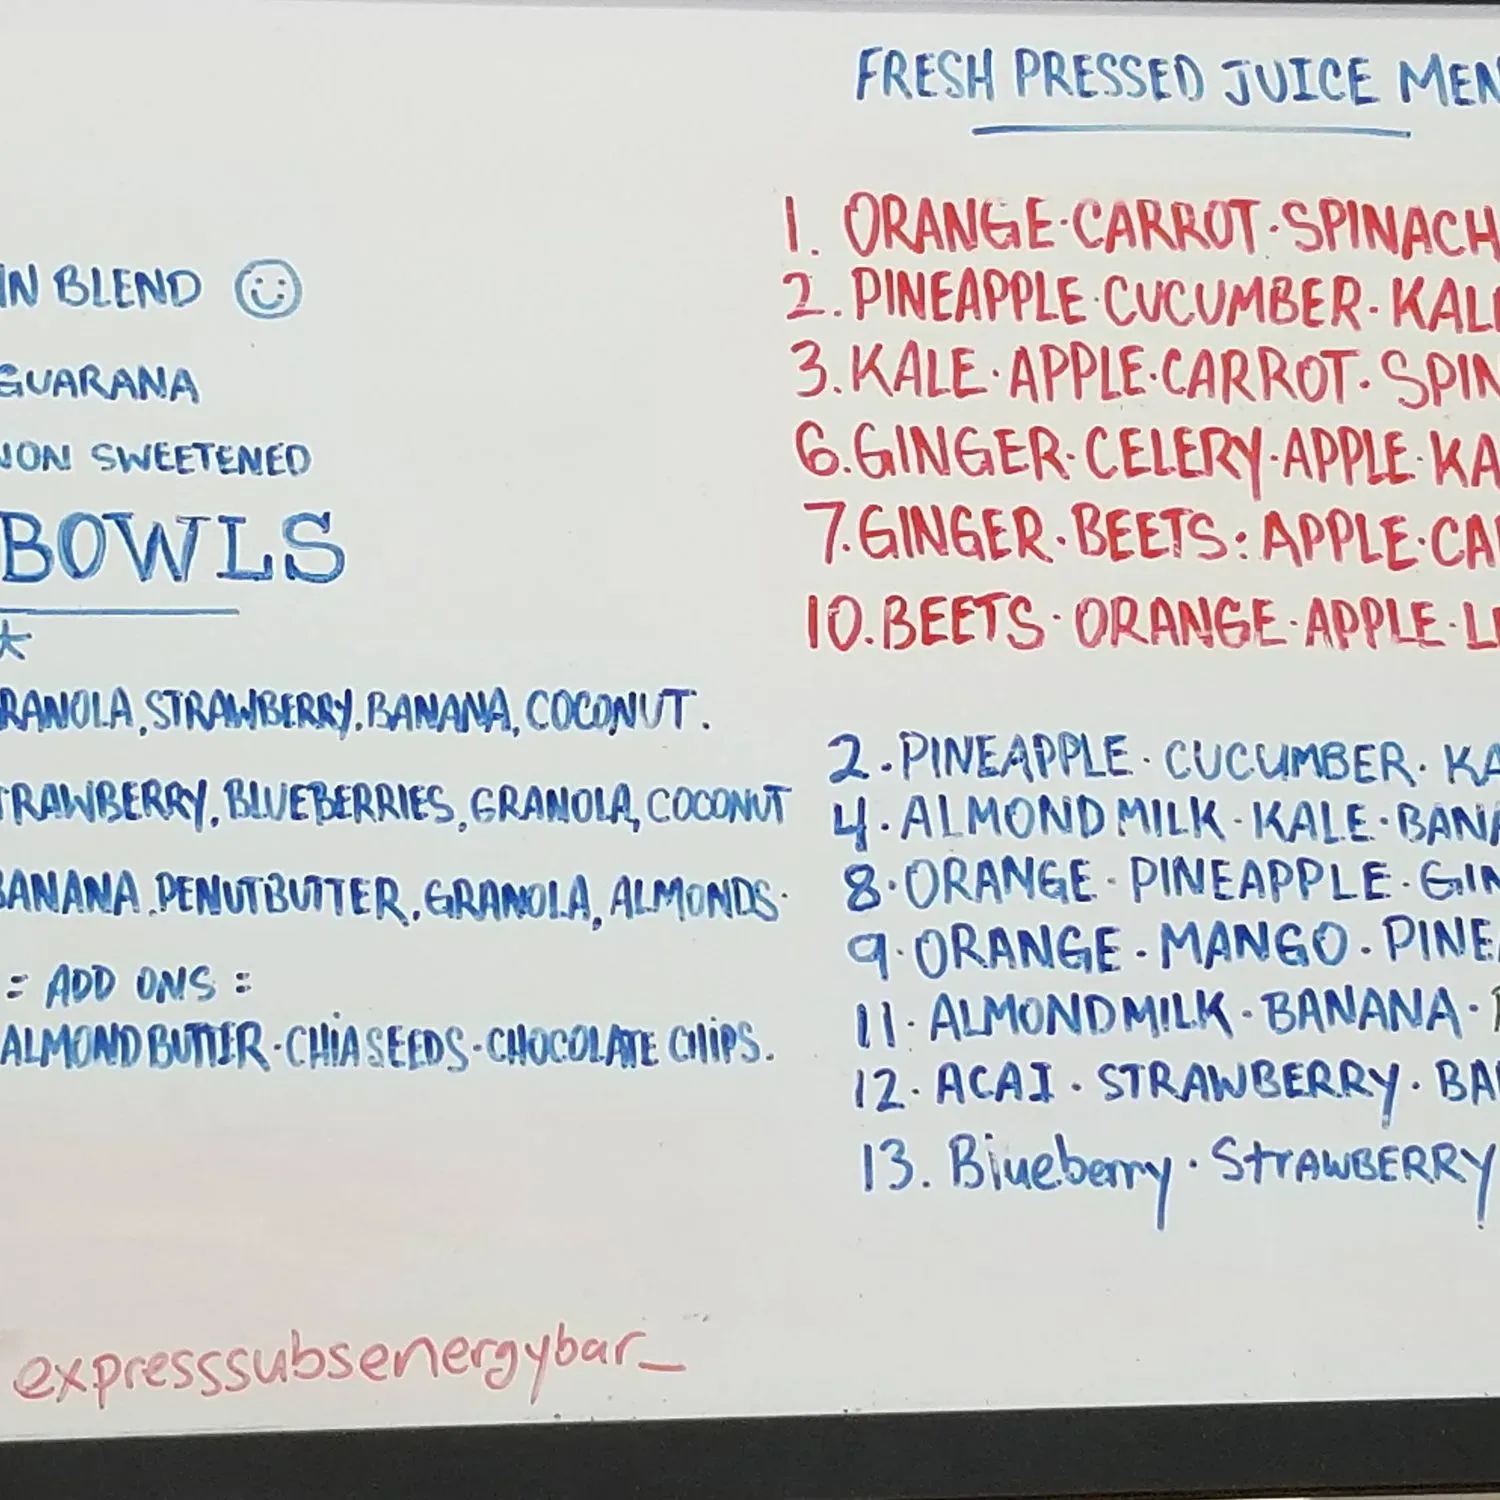 IN BLEND
GUARANA
NON SWEETENED
BOWLS
RANOLA, STRAWBERRY, BANANA, COCONUT.
TRAWBERRY, BLUEBERRIES, GRANOLA, COCONUT
BANANA, PENUTBUTTER, GRANOLA, ALMONDS.
= ADD ONS =
ALMOND BUTTER · CHIA SEEDS · CHOCOLATE CHIPS.
expresssubsenergybar_
FRESH PRESSED JUICE MEN
1. ORANGE · CARROT · SPINACH
2. PINEAPPLE · CUCUMBER · KALE
3. KALE · APPLE · CARROT · SPIN
6. GINGER · CELERY · APPLE · KA
7. GINGER · BEETS : APPLE · CA
10. BEETS · ORANGE · APPLE · LE
2. PINEAPPLE · CUCUMBER · KA
4. ALMOND MILK · KALE · BANA
8. ORANGE · PINEAPPLE · GIN
9. ORANGE · MANGO · PINE
11. ALMOND MILK · BANANA ·
12. ACAI · STRAWBERRY · BA
13. Blueberry · STRAWBERRY